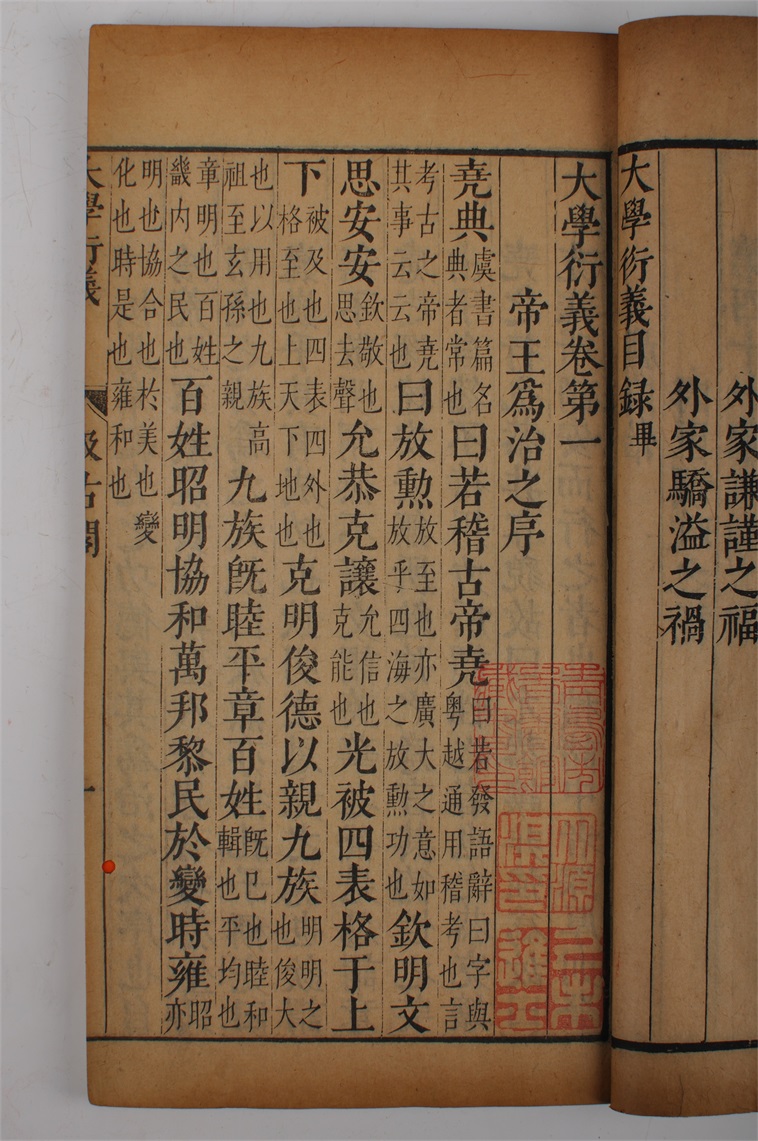 外家謙謹之福
外家驕溢之禍
大學衍義目録畢
大學衍義卷第一
帝王爲治之序
堯典虞書篇名典者常也曰若稽古帝堯曰若發語辭曰字與粤越通用稽考也言
考古之帝堯其事云云也曰放勲放至也亦廣大之意如放乎四海之放勲功也欽明文
思安安欽敬也思去聲允恭克讓允信也克能也光被四表格于上
下被及也四表四外也格至也上天下地也克明俊德以親九族明明之也俊大
也以用也九族高祖至玄孫之親九族旣睦平章百姓旣巳也睦和輯也平均也
章明也百姓畿内之民也百姓昭明協和萬邦黎民於變時雍昭亦
明也協合也於美也變化也時是也雍和也
大學衍義 汲古閣 一